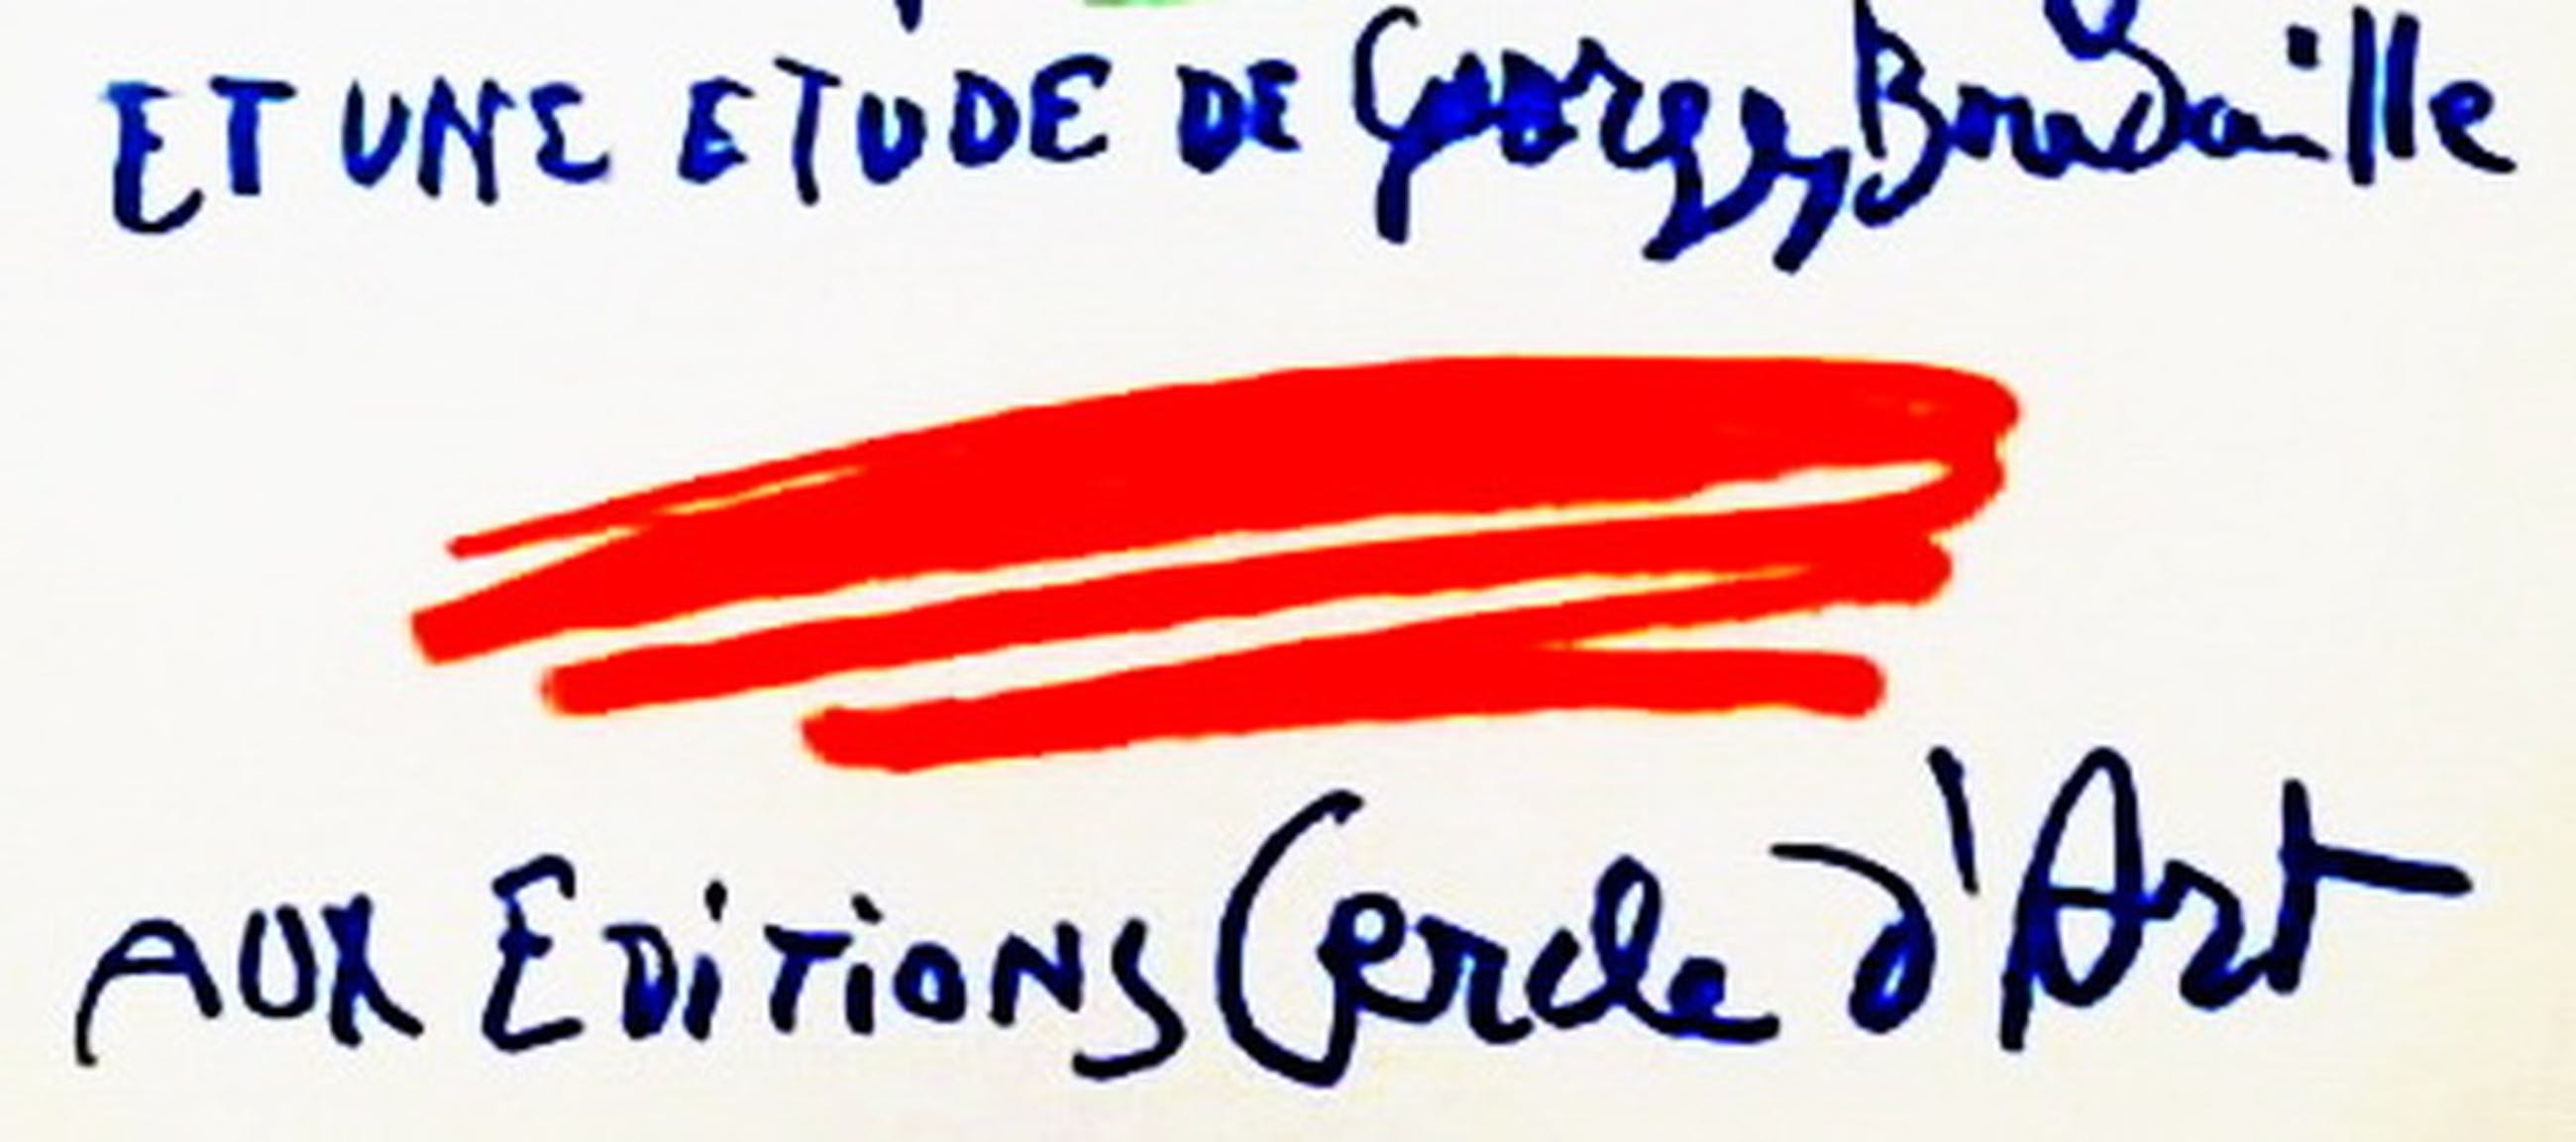 ET UNE ETUDE DE Georges Boudaille
AUX EDiTiONS Cercle d'Art